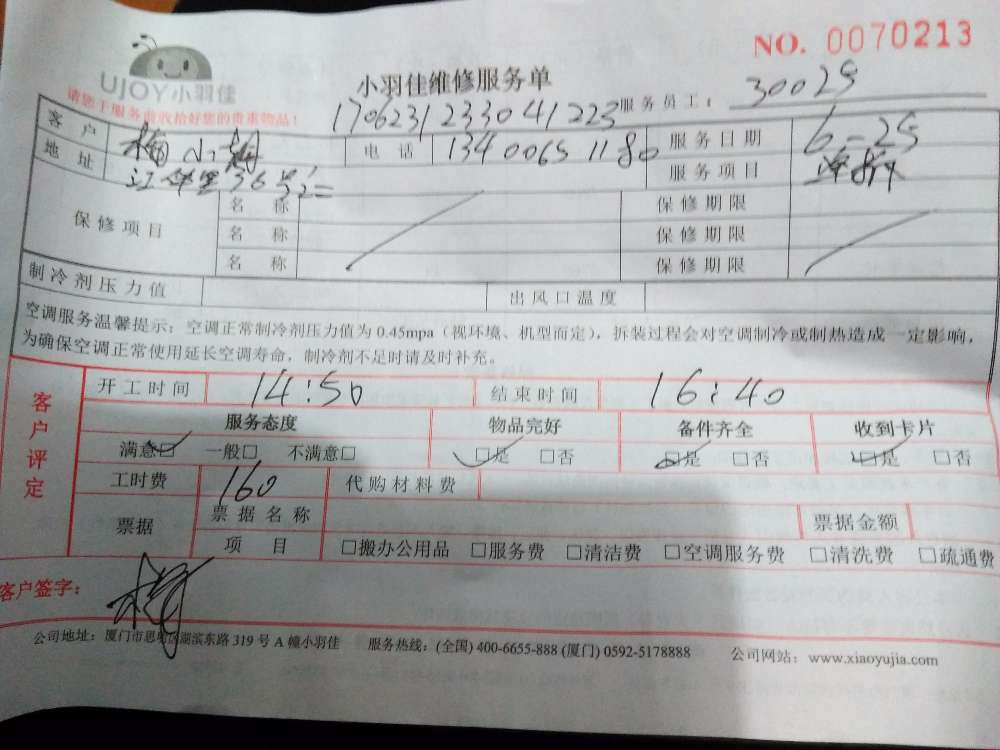 NO. 0070213
UJOY小羽佳
小羽佳维修服务单
请您于服务前收拾好您的贵重物品!
170623123304 1223
服务员工: 30025
客户 梅小姐 电话 13400651180 服务日期 6-25
地址 江华里36号 服务项目
保修项目 名称 保修期限
名称 保修期限
名称 保修期限
制冷剂压力值 出风口温度
空调服务温馨提示:空调正常制冷剂压力值为0.45mpa(视环境、机型而定),拆装过程会对空调制冷或制热造成一定影响,
为确保空调正常使用延长空调寿命,制冷剂不足时请及时补充。
客户评定
开工时间 14:50 结束时间 16:40
服务态度 物品完好 备件齐全 收到卡片
满意□ 一般□ 不满意□ □是 □否 □是 □否 □是 □否
工时费 160 代购材料费
票据 票据名称 票据金额
项目 □搬办公用品 □服务费 □清洁费 □空调服务费 □清洗费 □疏通费
客户签字: 梅
公司地址:厦门市思明区湖滨东路319号A幢小羽佳 服务热线:(全国) 400-6655-888 (厦门) 0592-5178888 公司网站:www.xiaoyujia.com